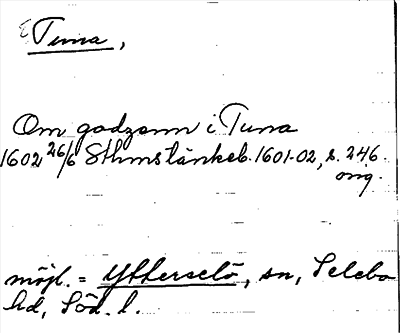 Tuna,
Om godzann i Tuna
1602 26/6 Sthms tänkeb. 1601-02, s. 246.
orig.
möjl. = Ytterselö, sn, Selebo
hd, Söd. l.